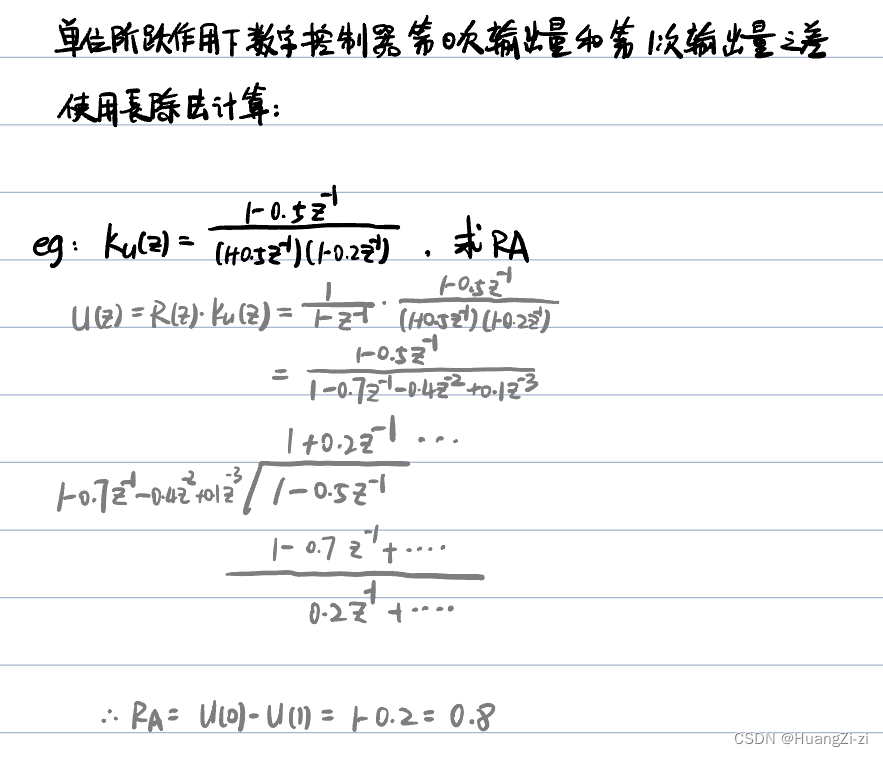 单位阶跃作用下数字控制器第0次输出量和第1次输出量之差
使用长除法计算:
eg: Ku(z) = (1-0.5z^-1)/((1+0.5z^-1)(1-0.2z^-1)) . 求RA
U(z) = R(z)·Ku(z) = 1/(1-z^-1) · (1-0.5z^-1)/((1+0.5z^-1)(1-0.2z^-1))
= (1-0.5z^-1)/(1-0.7z^-1-0.4z^-2+0.1z^-3)
1+0.2z^-1 ...
1-0.7z^-1-0.4z^-2+0.1z^-3 / 1-0.5z^-1
1-0.7z^-1+....
0.2z^-1+....
∴ RA = U(0)-U(1) = 1-0.2 = 0.8
CSDN @HuangZi-zi